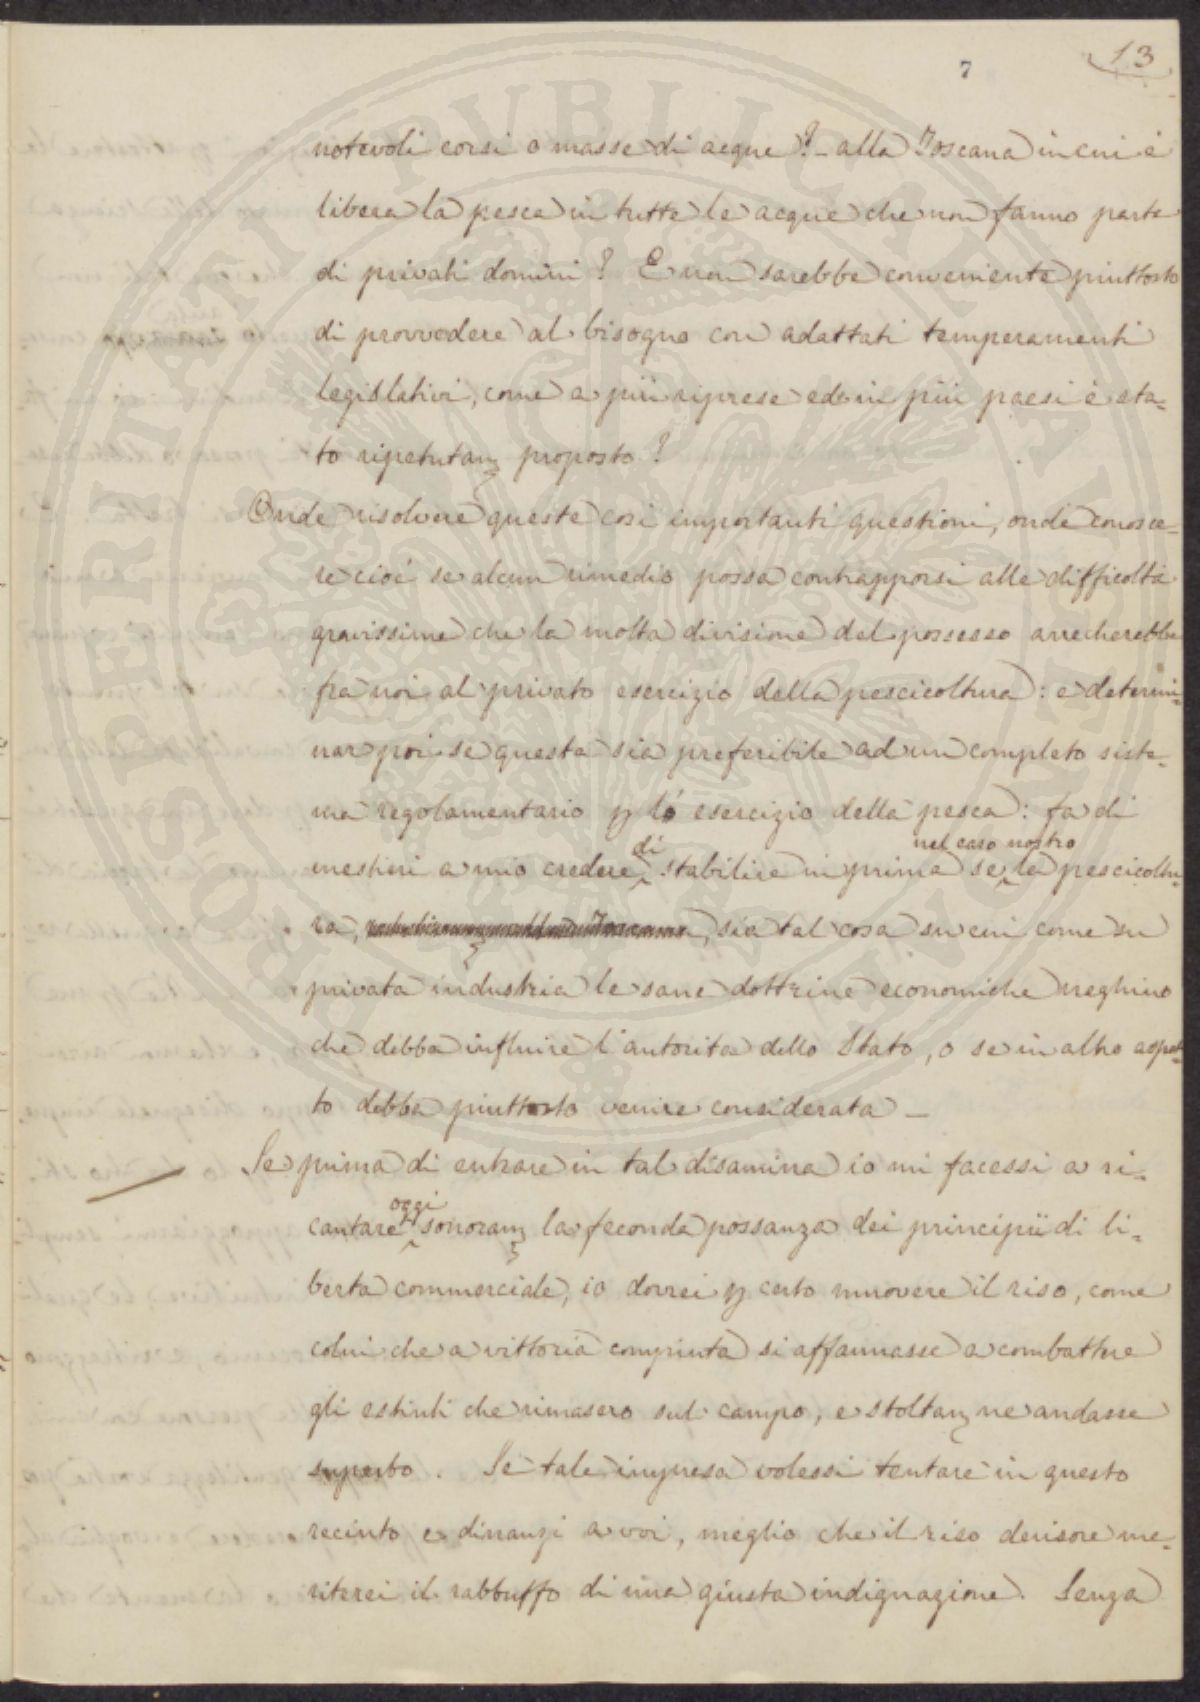 7
13
notevoli corsi o masse di acque? - alla Toscana in cui è
libera la pesca in tutte le acque che non fanno parte
di privati domini? E non sarebbe conveniente piuttosto
di provvedere al bisogno con adattati temperamenti
legislativi, come a più riprese ed in più paesi è sta-
to ripetutam proposto?
Onde risolvere queste così importanti questioni, onde conosce-
re cioè se alcun rimedio possa contrapporsi alle difficoltà
gravissime che la molta divisione del possesso arrecherebbe
fra noi al privato esercizio della pescicoltura: e determi-
nar poi se questa sia preferibile ad un completo siste-
ma regolamentario p lo esercizio della pesca: fa di
di nel caso nostro
mestieri a mio credere stabilire in prima se la pescicoltu-
ra, sia tal cosa su cui come su
privata industria le sane dottrine economiche neghino
che debba influire l'autorità dello Stato, o se in altro aspet-
to debba piuttosto venire considerata -
Se prima di entrare in tal disamina io mi facessi a ri-
oggi
cantare sonoram la feconda possanza dei principii di li-
bertà commerciale, io dovrei p certo muovere il riso, come
colui che a vittoria compiuta si affannasse a combattere
gli estinti che rimasero sul campo, e stoltam ne andasse
superbo. Se tale impresa volessi tentare in questo
recinto e dinanzi a voi, meglio che il riso derisore me-
riterei il rabbuffo di una giusta indignazione. Senza
PROSPERITATI PVBLICAE AVGENDAE